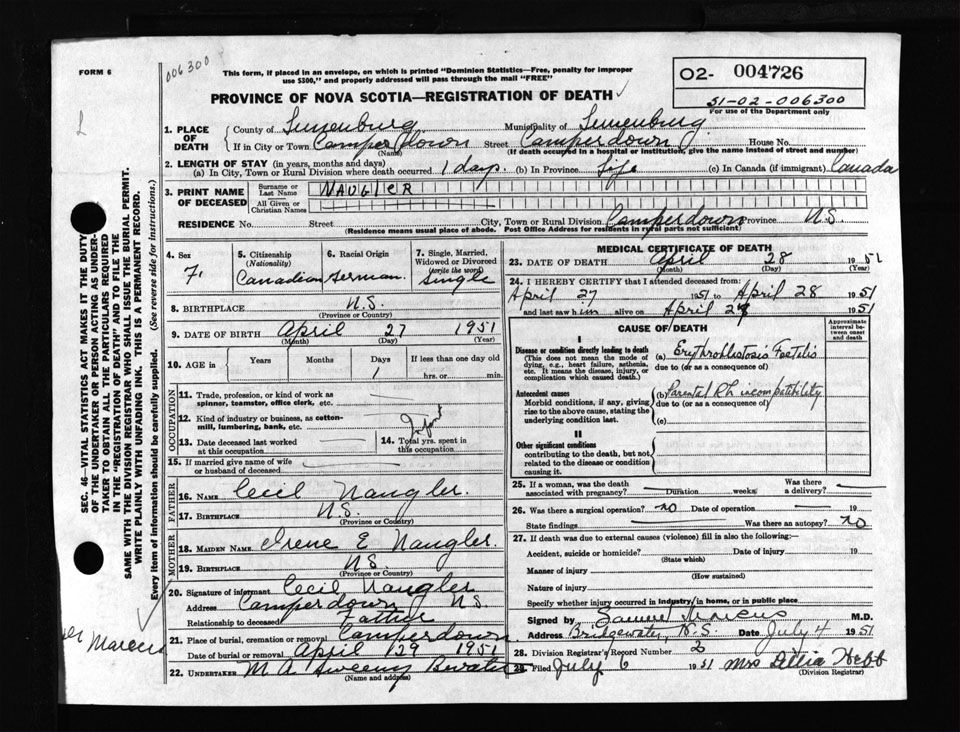 FORM 6
006300
This form, if placed in an envelope, on which is printed "Dominion Statistics—Free, penalty for improper use $300," and properly addressed will pass through the mail "FREE"
PROVINCE OF NOVA SCOTIA—REGISTRATION OF DEATH
O2- 004726
51-02-006300
For use of the Department only
1. PLACE OF DEATH
County of Lunenburg Municipality of Lunenburg
If in City or Town Camperdown Street Camperdown House No.
(Name) (If death occurred in a hospital or institution, give the name instead of street and number)
2. LENGTH OF STAY (in years, months and days)
(a) In City, Town or Rural Division where death occurred 1 day. (b) In Province Life (c) In Canada (if immigrant) Canada
3. PRINT NAME OF DECEASED
Surname or Last Name NAUGLER
All Given or Christian Names
RESIDENCE No. Street City, Town or Rural Division Camperdown Province N.S.
(Residence means usual place of abode. Post Office Address for residents in rural parts not sufficient)
4. Sex F.
5. Citizenship (Nationality) Canadian
6. Racial Origin German.
7. Single, Married, Widowed or Divorced (write the word) Single
8. BIRTHPLACE N.S.
(Province or Country)
9. DATE OF BIRTH April 27 1951
(Month) (Day) (Year)
10. AGE in Years Months Days 1 If less than one day old hrs. or min.
OCCUPATION
11. Trade, profession, or kind of work as spinner, teamster, office clerk, etc.
12. Kind of industry or business, as cotton-mill, lumbering, bank, etc.
13. Date deceased last worked at this occupation
14. Total yrs. spent in this occupation
15. If married give name of wife or husband of deceased
FATHER
16. NAME Cecil Naugler.
17. BIRTHPLACE N.S.
(Province or Country)
MOTHER
18. MAIDEN NAME Irene E Naugler.
19. BIRTHPLACE N.S.
(Province or Country)
20. Signature of informant Cecil Naugler
Address Camperdown N.S.
Relationship to deceased Father
21. Place of burial, cremation or removal Camperdown
Date of burial or removal April 29 1951
22. UNDERTAKER M A Sweeny
(Name and address)
MEDICAL CERTIFICATE OF DEATH
23. DATE OF DEATH April 28 1951
(Month) (Day) (Year)
24. I HEREBY CERTIFY that I attended deceased from:
April 27 1951 to April 28 1951
and last saw him alive on April 28 1951
CAUSE OF DEATH
Approximate interval between onset and death
I
Disease or condition directly leading to death
(This does not mean the mode of dying, e.g., heart failure, asthenia, etc. It means the disease, injury, or complication which caused death.)
(a) Erythroblastosis Foetalis
due to (or as a consequence of)
Antecedent causes
Morbid conditions, if any, giving rise to the above cause, stating the underlying condition last.
(b) Parental Rh incompatibility
due to (or as a consequence of)
(c)
II
Other significant conditions
contributing to the death, but not related to the disease or condition causing it.
25. If a woman, was the death associated with pregnancy? Duration weeks Was there a delivery?
26. Was there a surgical operation? NO Date of operation 19
State findings Was there an autopsy? NO
27. If death was due to external causes (violence) fill in also the following:
Accident, suicide or homicide? Date of injury 19
(State which)
Manner of injury
(How sustained)
Nature of injury
Specify whether injury occurred in industry, in home, or in public place
Signed by Samuel Marcus M.D.
Address Bridgewater, N.S. Date July 4 1951
28. Division Registrar's Record Number 2
29. Filed July 6 1951 Mrs Dellia Hebb
(Division Registrar)
SEC. 46—VITAL STATISTICS ACT MAKES IT THE DUTY
OF THE UNDERTAKER OR PERSON ACTING AS UNDER-
TAKER TO OBTAIN ALL THE PARTICULARS REQUIRED
IN THE "REGISTRATION OF DEATH" AND FILE THE
SAME WITH THE DIVISION REGISTRAR WHO SHALL ISSUE THE BURIAL PERMIT.
WRITE PLAINLY WITH UNFADING INK. THIS IS A PERMANENT RECORD.
Every item of information should be carefully supplied. (See reverse side for instructions.)
Marcus